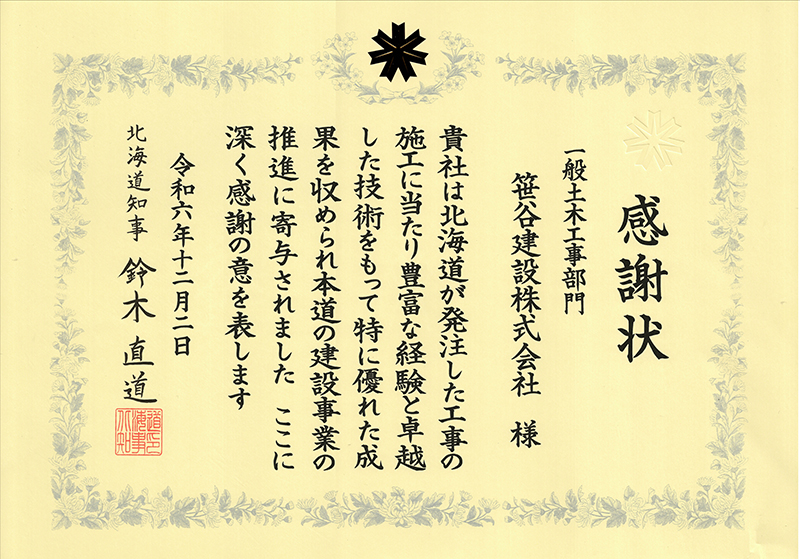 感謝状
一般土木工事部門
笹谷建設株式会社 様
貴社は北海道が発注した工事の
施工に当たり豊富な経験と卓越
した技術をもって特に優れた成
果を収められ本道の建設事業の
推進に寄与されました ここに
深く感謝の意を表します
令和六年十二月二日
北海道知事 鈴木直道